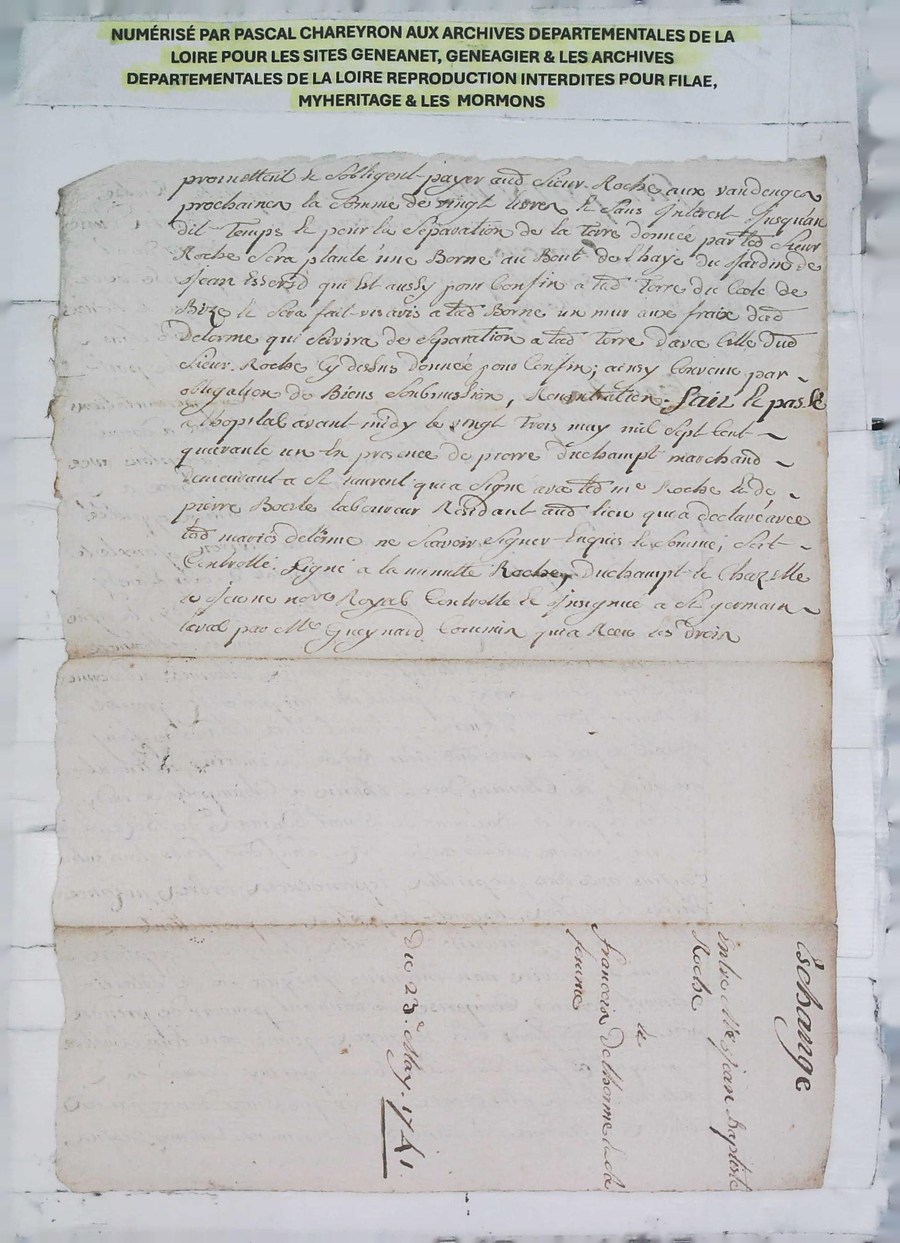 NUMÉRISÉ PAR PASCAL CHAREYRON AUX ARCHIVES DEPARTEMENTALES DE LA
LOIRE POUR LES SITES GENEANET, GENEAGIER & LES ARCHIVES
DEPARTEMENTALES DE LA LOIRE REPRODUCTION INTERDITES POUR FILAE,
MYHERITAGE & LES MORMONS
promettent et sobligent payer aud sieur Roche aux vandenges
prochaines la somme de vingt livres et sans Interest Jusqu'au
dit Temps et pour la separation de la Terre donnée par led sieur
Roche sera planté une Borne au Bout de l'haye du Jardin de
Jean qui Est aussy pour Confin a lad Terre du Coste de
Bize et sera fait vis avis a lad Borne un mur aux fraix dud
Delorme qui servira de separation a lad Terre d'avec Celle dud
sieur Roche Cy dessus donnée pour Confin; ainsy Convenu par
obligation de Biens soubmission, Renontiation. fait et passé
a l'hopital avant midy le vingt Trois may mil sept Cent
quarante un En presence de pierre Duchampt marchand
demeurant a st laurent qui a signé avec led me Roche et de
pierre laboureur Residant aud lieu qui a declaré avec
lesd mariés delorme ne scavoir signer Enquis et sommé, soit
Controllé. signé a la minutte Roche, Duchampt et Chazelle
nore Royal Controllé et Insignué a st germain
laval par Me Gueynard Commis qui a Receu les droits
Eschange
entre Me Jean Baptiste
Roche
et
francois Delhorme et sa
femme
Du 23e May 1741